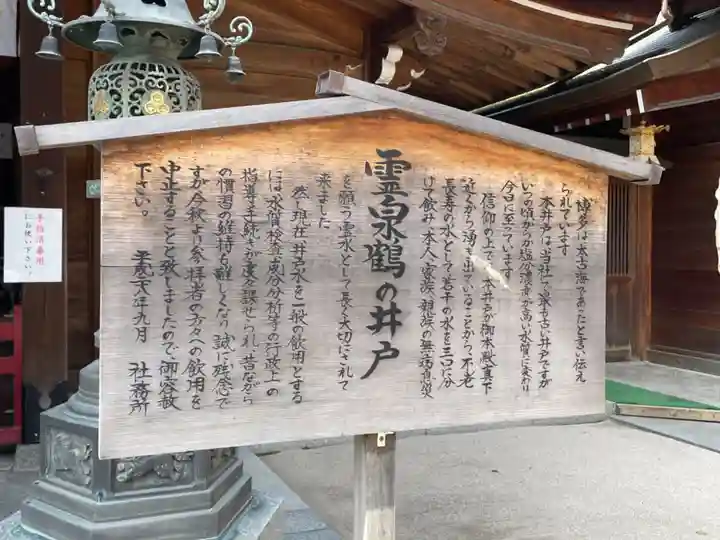 博多は太古海であったと言い伝え
られています
本井戸は当社で最も古い井戸ですが
いつの頃からか塩分濃度が高い水質に変わり
今日に至っています
信仰の上では本井戸が御本殿真下
近くから湧き出ていることから不老
長寿の水として若干の水を三口に分
けて飲み本人、家族、親族の無病息災
霊泉鶴の井戸
を願う霊水として長く大切にされて
来ました
然し現在井戸水を一般の飲用とする
には水質検査成分分析等の行政上の
指導手続きが遂々課せられ昔ながら
の慣習の維持も難しくなり誠に残念で
すが今秋より参拝者の方々への飲用を
中止することと致しましたので御容赦
下さい。
平成六年九月 社務所
手指消毒用
にお使い下さい!